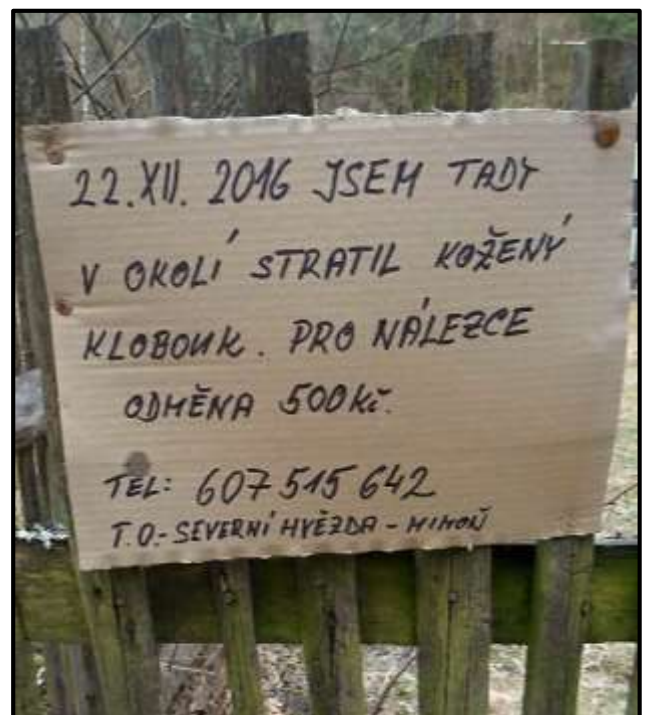 22.XII. 2016 JSEM TADY
V OKOLÍ STRATIL KOŽENÝ
KLOBOUK. PRO NÁLEZCE
ODMĚNA 500 Kč.
TEL: 607 515 642
T.O.-SEVERNÍ HVĚZDA - MIMOŇ